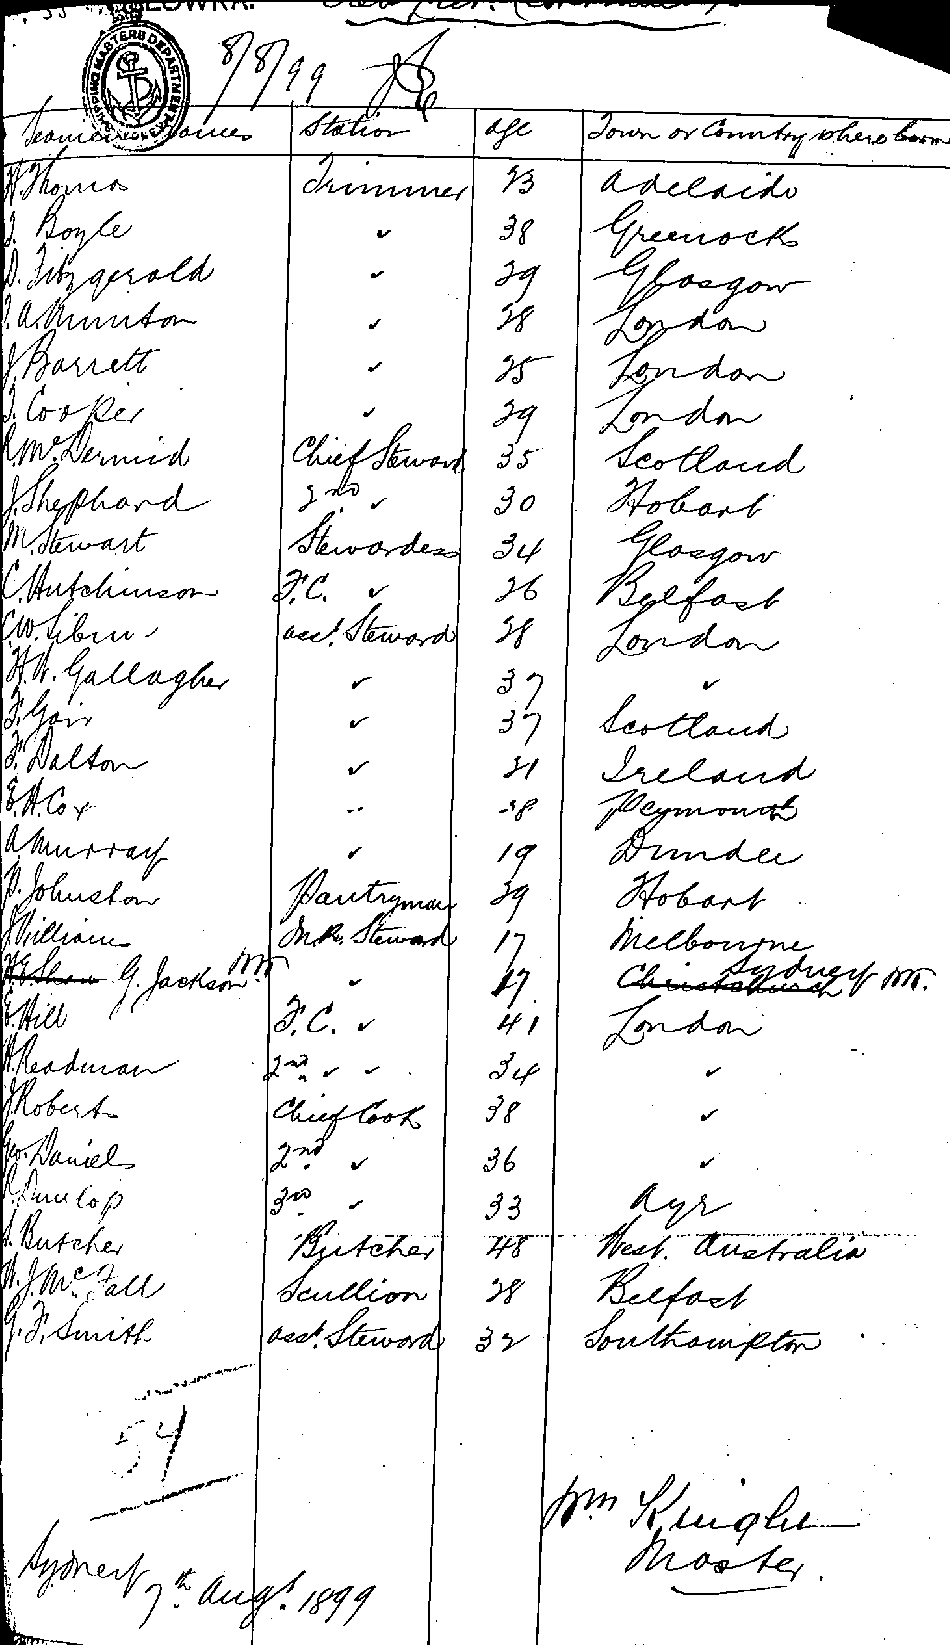 8/8/99
Seamens names Station age Town or Country where born
H Thomas Trimmer 23 Adelaide
Boyle ✓ 38 Greenock
D. Fitzgerald ✓ 29 Glasgow
✓ 28 London
J. Barrett ✓ 25 London
Cooper ✓ 29 London
McDermid Chief Steward 35 Scotland
J. Shephard 2nd ✓ 30 Hobart
M. Stewart Stewardess 34 Glasgow
C. Hutchinson F.C. ✓ 26 Belfast
C.W. asst. Steward 28 London
H.W. Gallagher ✓ 37 ✓
F. Gair ✓ 37 Scotland
F. Dalton ✓ 21 Ireland
E.A. Cox 28 Plymouth
A. Murray ✓ 19 Dundee
P. Johnston Pantryman 29 Hobart
J Williams M.R. Steward 17 Melbourne
G. Jackson ✓ 17 Christchurch Sydney
E. Hill F.C. ✓ 41 London
Readman 2nd ✓ ✓ 34 ✓
J Roberts Chief Cook 38 ✓
Geo. Daniels 2nd ✓ 36 ✓
Dunlop 3rd ✓ 33 Ayr
Butcher Butcher 48 West. Australia
W. J. McFall Scullion 28 Belfast
G. F. Smith asst. Steward 32 Southampton
54
Wm Knight
Master.
Sydney 7th Augt. 1899